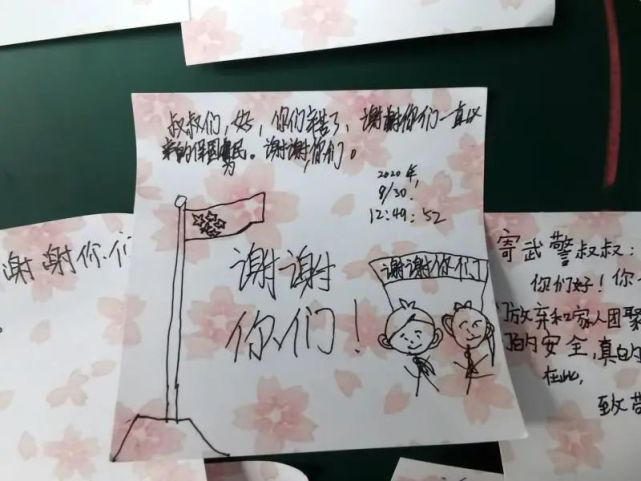 叔叔们,好,你们辛苦了,谢谢你们一直以
来的保国为民。谢谢,你们。
2020年,
9/30.
12:49:52
谢谢
你们!
谢谢你们
谢谢你.们
寄武警叔叔:
你们好!你
放弃和家人团聚
的安全,真的
在此,
致